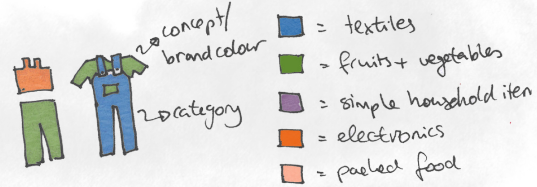 concept/
brand colour
category
= textiles
= fruits + vegetables
= simple household item
= electronics
= packed food